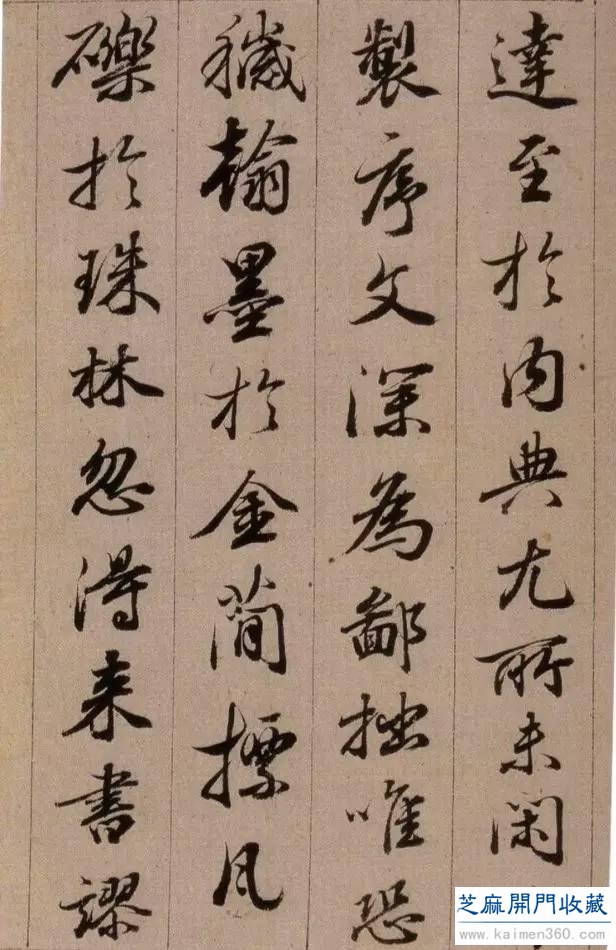 達至於内典尤所未閑
製序文深為鄙拙唯恐
穢翰墨於金簡摽瓦
礫於珠林忽得来書謬
芝麻開門收藏
www.kaimen360.com